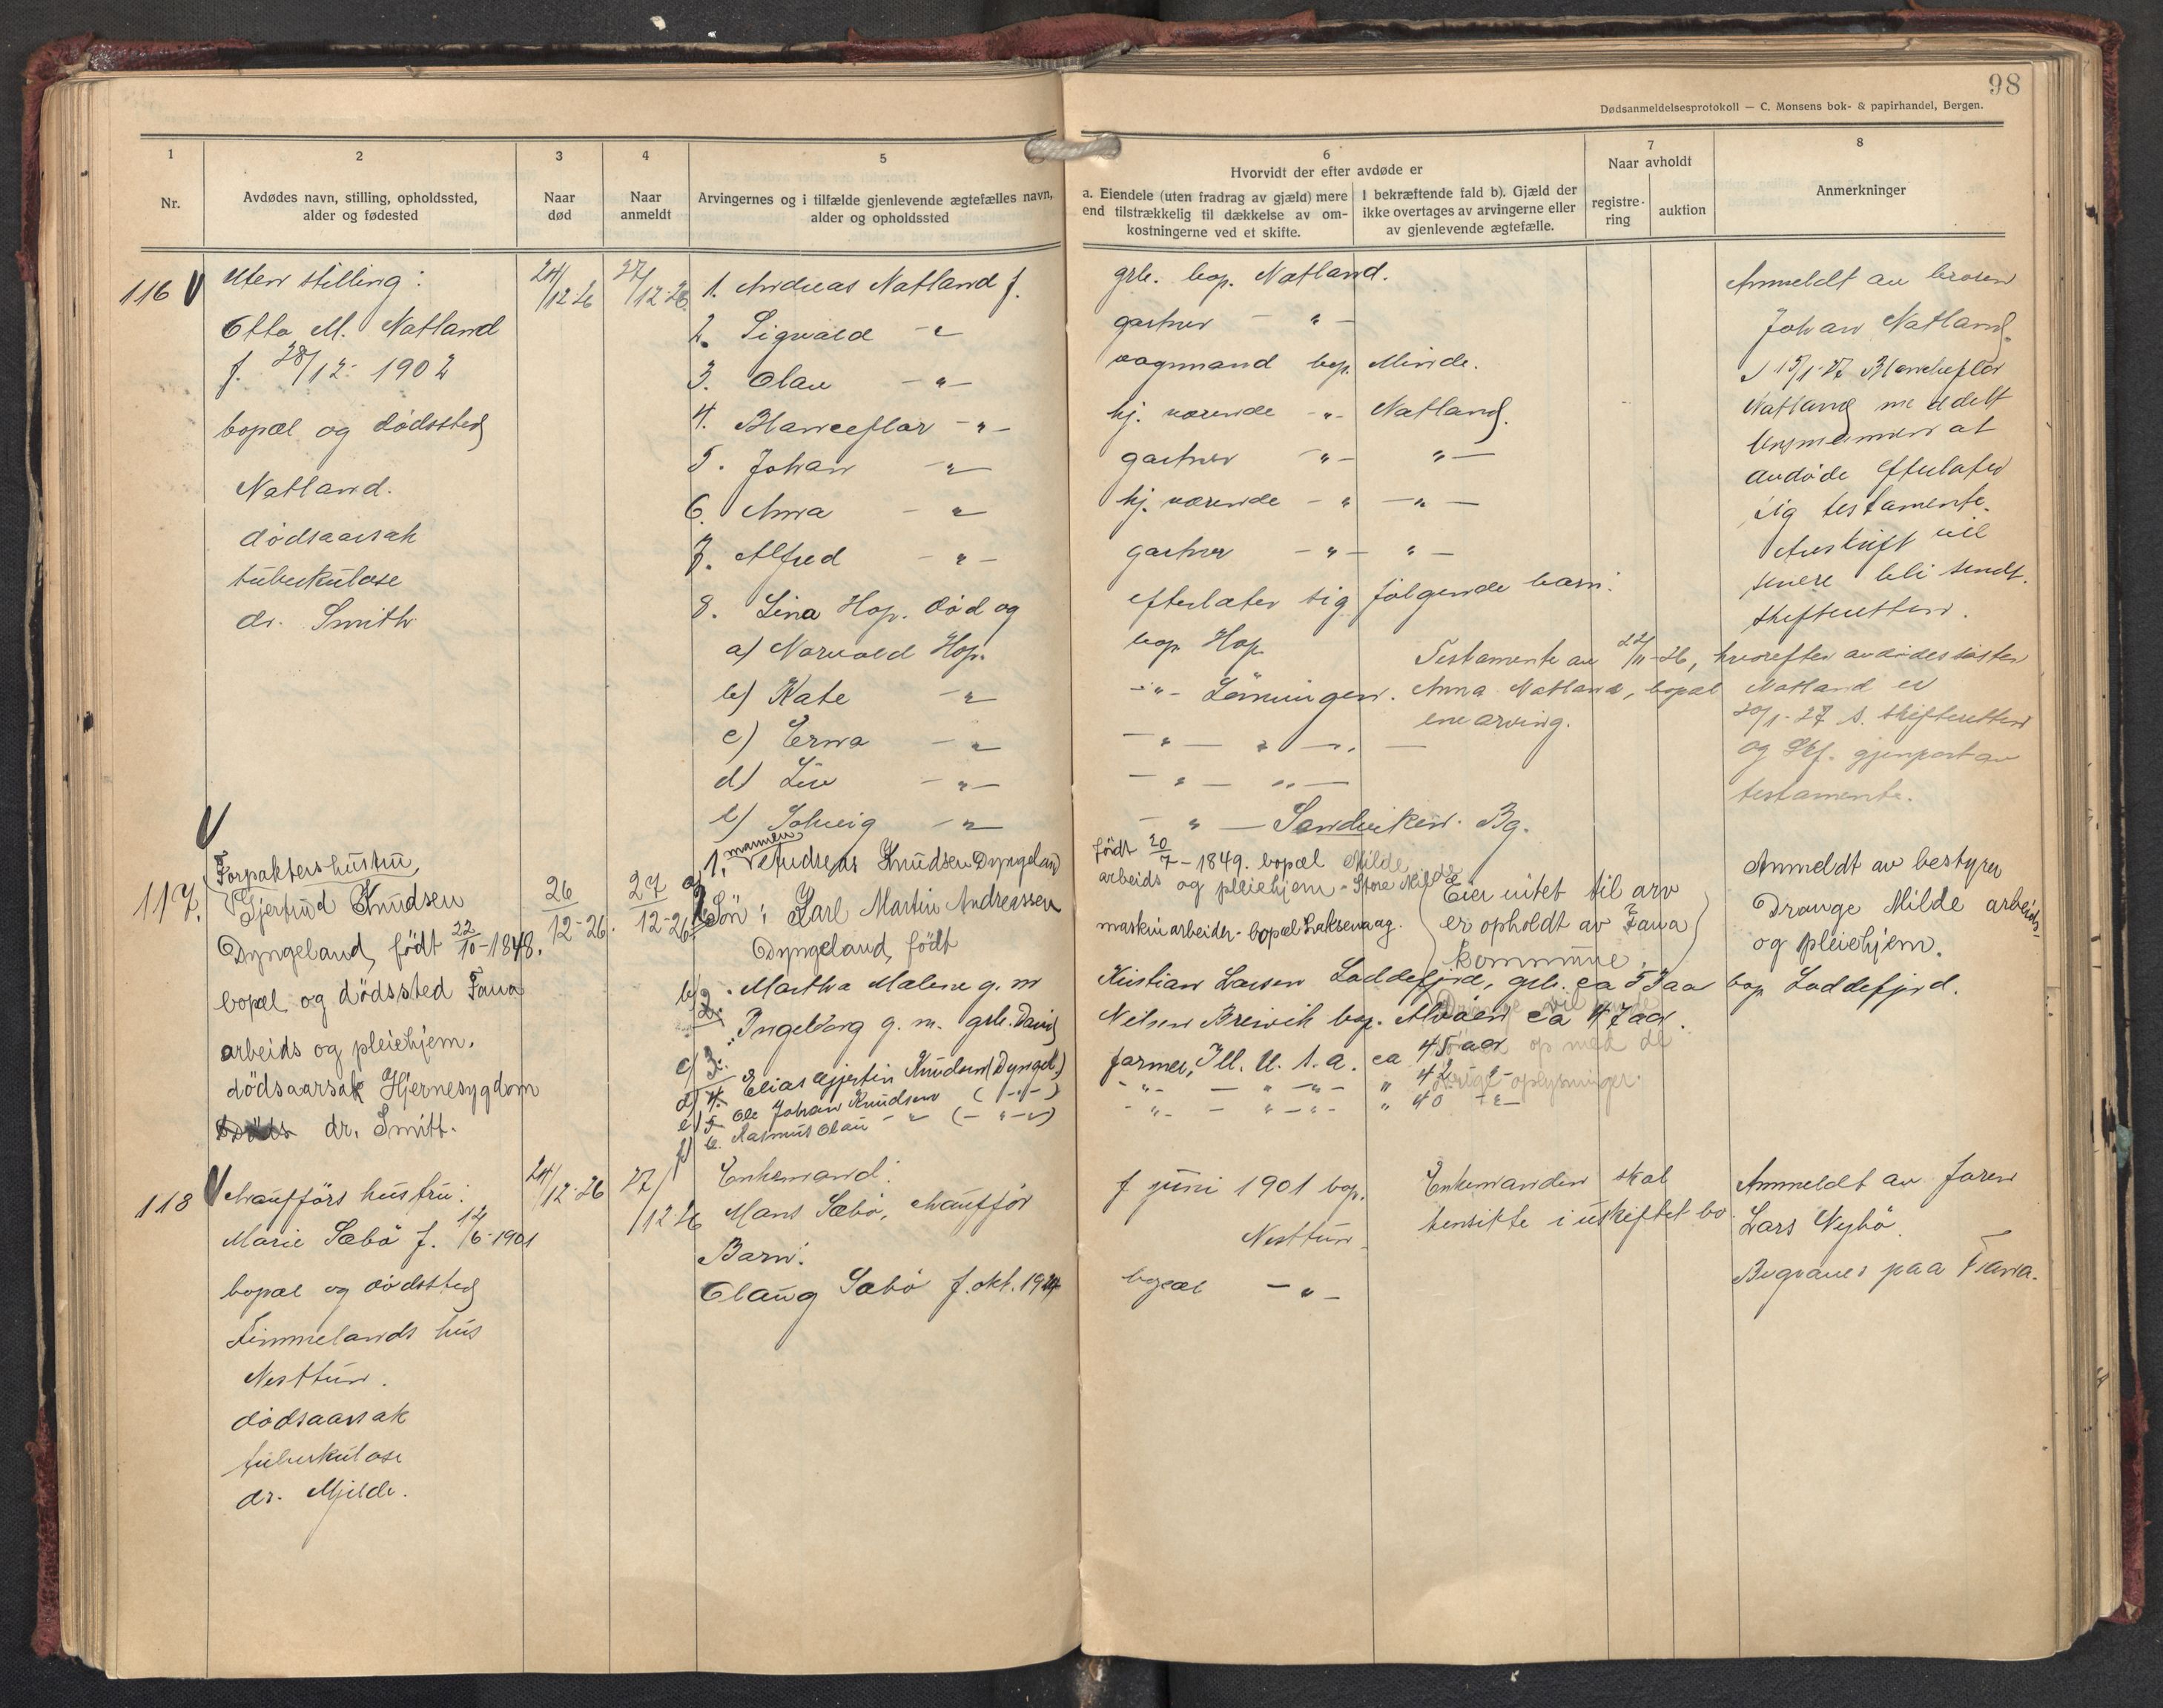 98
Dødsanmeldelsesprotokoll — C. Monsens bok- & papirhandel, Bergen.
1
Nr.
2
Avdødes navn, stilling, opholdssted,
alder og fødested
3
Naar
død
4
Naar
anmeldt
5
Arvingernes og i tilfælde gjenlevende ægtefælles navn,
alder og opholdssted
6
Hvorvidt der efter avdøde er
a. Eiendele (uten fradrag av gjæld) mere
end tilstrækkelig til dækkelse av om-
kostningerne ved et skifte.
I bekræftende fald b). Gjæld der
ikke overtages av arvingerne eller
av gjenlevende ægtefælle.
7
Naar avholdt
registre-
ring
auktion
8
Anmerkninger
116 V
Uten stilling:
Otto M. Natland
f. 28/12- 1902
bopæl og dødssted
Natland.
dødsaarsak
tuberkulose
dr. Smith
24/12-26
27/12-26
1. Andreas Natland f.
2. Sigvald - " -
3. Olav - " -
4. Blanceflor - " -
5. Johan - " -
6. Anna - " -
7. Alfred - " -
8. Lina Hop. død og
a) Norvald Hop.
b) Kate - " -
c) Erna - " -
d) Liv - " -
e) Solveig - " -
grb. bop. Natland.
gartner - " -
vognmand bop. Minde.
hj. værende - " - Natland.
gartner - " - " -
hj. værende - " - " -
gartner - " - " -
efterlater sig følgende barn:
bop. Hop.
- " - Lønningen.
- " - " -
- " - " -
- " - Sandviken. Bg.
Testamente av 22/11-26, hvorefter avdødes søster
Anna Natland, bopæl Natland er
enearving.
Anmeldt av broren
Johan Natland.
D 15/1-27 Blanceflor
Natland meddelt
lensmannen at
avdøde efterlater
sig testamente.
Avskrift vil
senere bli sendt
skifteretten.
20/1-27 s. skifteretten
og Skf. gjenpart av
testamente.
V
117.
Forpakters hustru
Gjertrud Knudsen
Dyngeland, født 22/10-1848.
bopæl og dødssted Fana
arbeids og pleiehjem.
dødsaarsak Hjernesygdom
dr. Smitt.
26/12-26.
27/12-26
1. mannen Andreas Knudsen Dyngeland
a) Søn: Karl Martin Andreassen
Dyngeland, født
b) 2. Martha Malene g. m
c) 3. Ingeborg g. m. grb. David
d) 4. Elias Gjertin Knudsen (Dyngel.)
e) 5. Ole Johan Knudsen ( - " - )
f) 6. Rasmus Olai - " - ( - " - )
født 20/7-1849. bopæl Milde
arbeids og pleiehjem - Store Milde
maskinarbeider - bopæl Laksevaag.
Eier intet til arv
er opholdt av Fana
kommune.
Kristian Larsen Loddefjord, grb. ca 53 aar bop. Loddefjord.
Nilsen Breivik bop. Alvøen ca 47 aar.
farmer, Ill. U. S. a. ca 45 aar
- " - - " - " - " 42 - " -
- " - - " - " - " 40 - " -
op med de
øvrige oplysninger.
Anmeldt av bestyrer
Drange Milde arbeids-
og pleiehjem.
118 V
Chaufførs hustru:
Marie Sæbø f. 12/6-1901
bopæl og dødssted
Timmelands hus
Nesttun.
dødsaarsak
tuberkulose
dr. Mjelde.
24/12-26
27/12-26
Enkemand:
Mons Sæbø, chauffør
Barn:
Olaug Sæbø f. okt. 1924
f juni 1901 bop.
Nesttun
bopæl - " -
Enkemanden skal
hensitte i uskiftet bo.
Anmeldt av faren
Lars Nybø.
Begraves paa Fana.